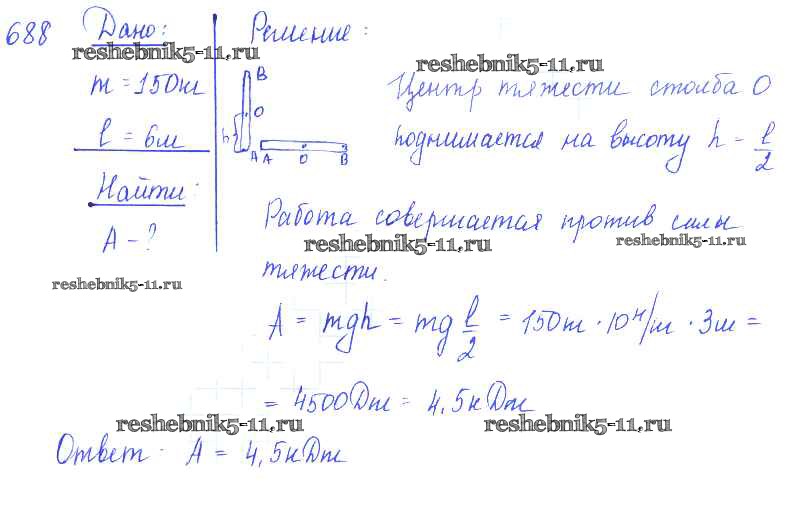 688
Дано:
reshebnik5-11.ru
m = 150кг
l = 6м
Найти:
A - ?
reshebnik5-11.ru
Решение:
reshebnik5-11.ru
B
O
h
A
A O B
Центр тяжести столба O
поднимается на высоту h = l/2
Работа совершается против силы
reshebnik5-11.ru
reshebnik5-11.ru
тяжести.
A = mgh = mg l/2 = 150кг · 10 Н/кг · 3м =
= 4500Дж = 4,5кДж
reshebnik5-11.ru
reshebnik5-11.ru
Ответ: A = 4,5кДж